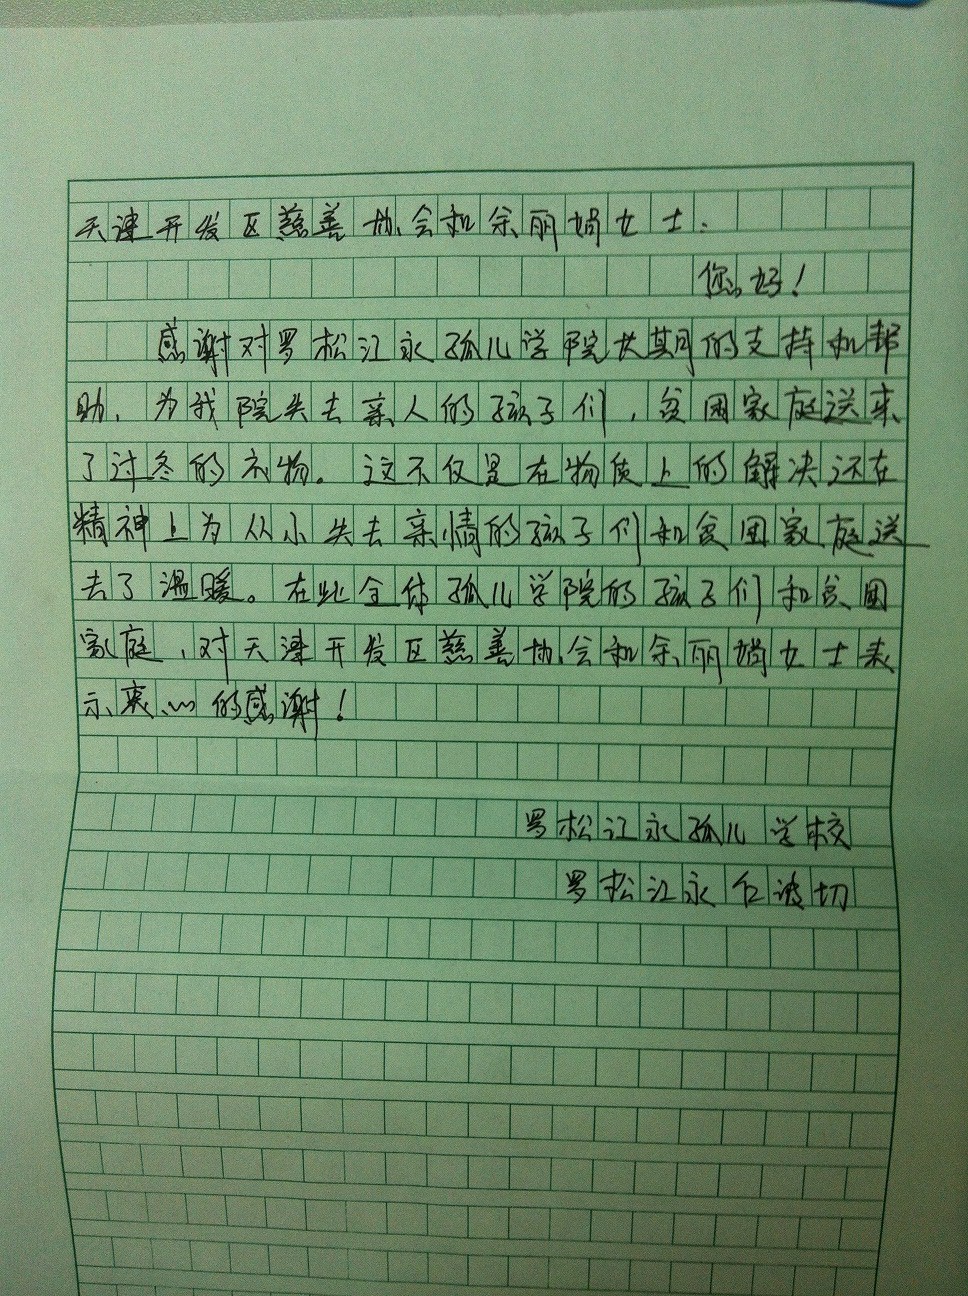 天津开发区慈善协会和余丽娟女士：
您好！
感谢对罗松江永孤儿学院长期的支持和帮
助、为我院失去亲人的孩子们，贫困家庭送来
了过冬的礼物。这不仅是在物质上的解决还在
精神上为从小失去亲情的孩子们和贫困家庭送
去了温暖。在此全体孤儿学院的孩子们和贫困
家庭，对天津开发区慈善协会和余丽娟女士表
示衷心的感谢！
罗松江永孤儿学校
罗松江永仁波切